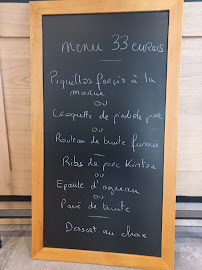 menu 33 euros
Piquillos farcis à la
morue
ou
Croquette de pied de porc
ou
Rouleau de truite fumée
Ribs de porc Kintoa
ou
Epaule d'agneau
ou
Pavé de truite
Dessert au choix